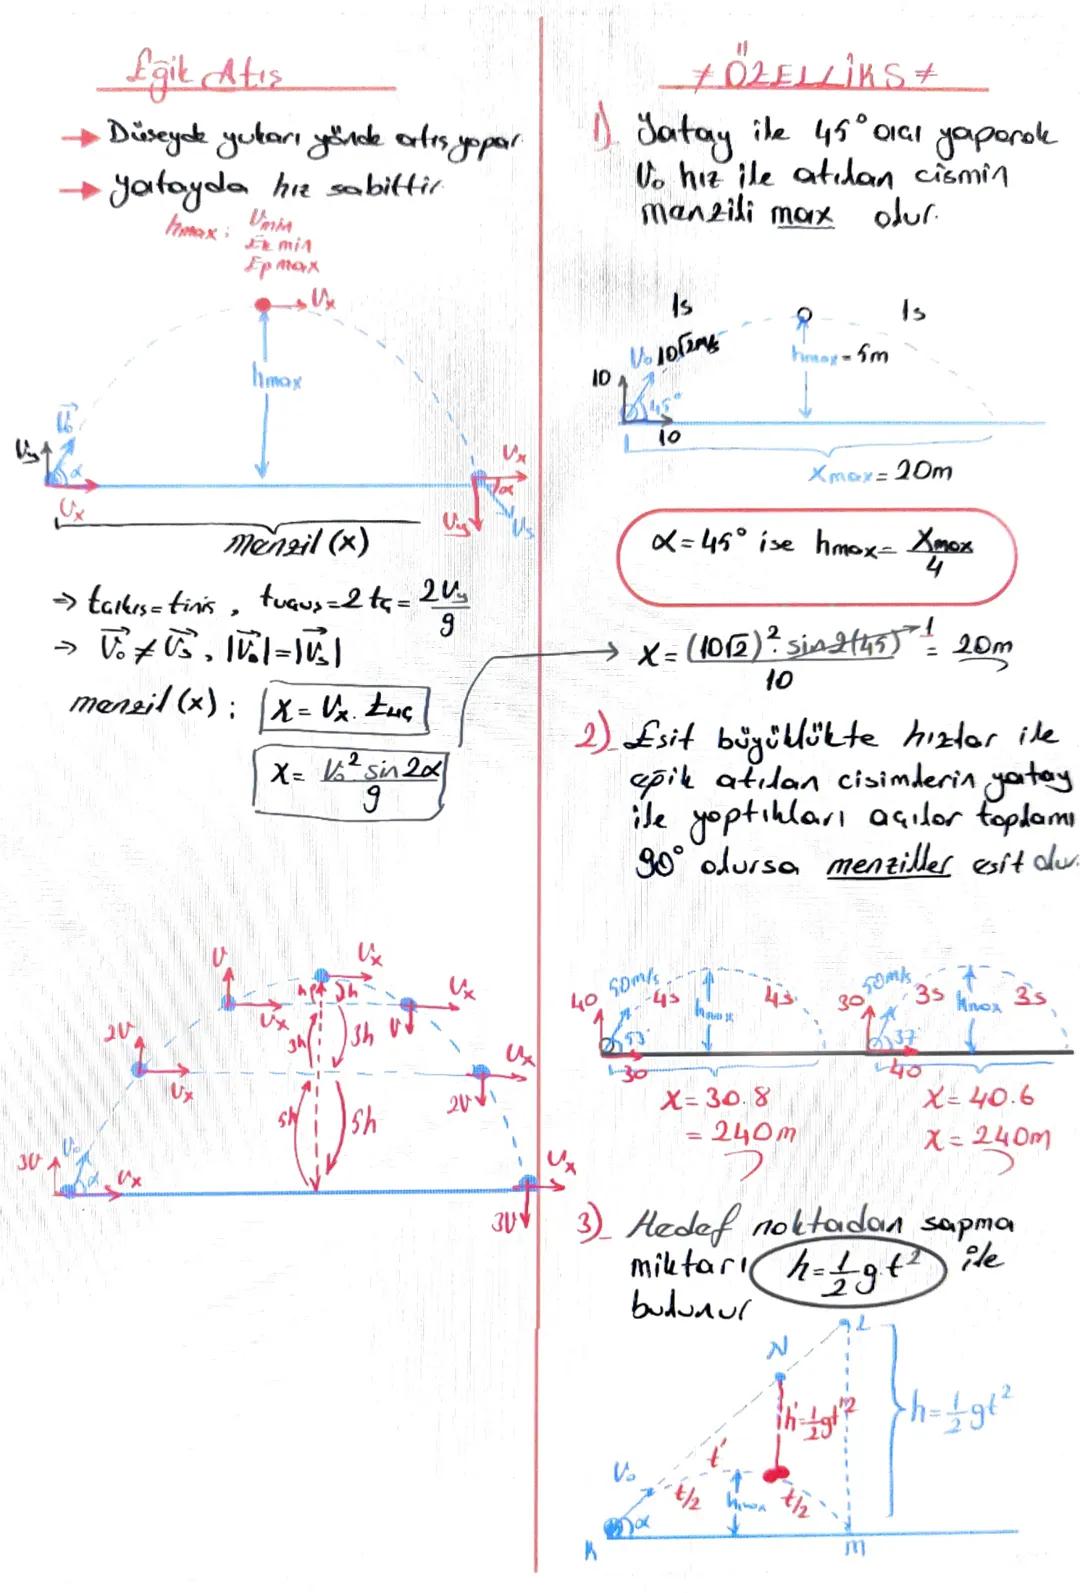 Eğik Atış
→ Düşeyde yukarı yönde atış yapar.
→ yatayda hız sabittir.
hmax: Vmin
Ek min
Ep max
Vx
hmax
V₀
Vy
α
Vx
Vx
α
Vy
Vs
menzil (x)
⇒ tçıkış = tiniş, tuçuş = 2tç = 2Vy/g
⇒ V₀ ≠ Vs, |V₀| = |Vs|
menzil (x): X = Vx. tuç
X = V₀² sin 2α / g
V
Vx
Vx
h
h
Vx
V
2V
Vx
3h
3h
Vx
2V
5h
5h
3V
V₀
α
Vx
Vx
3V
≠ ÖZELLİKS ≠
1) Yatay ile 45° açı yaparak
V₀ hız ile atılan cismin
menzili max olur.
1s
1s
V₀ 10√2m/s
hmax = 5m
10
45°
10
Xmax = 20m
α = 45° ise hmax = Xmax/4
X = (10√2)². sin2(45) / 10 = 20m
1
2) Eşit büyüklükte hızlar ile
eğik atılan cisimlerin yatay
ile yaptıkları açılar toplamı
90° olursa menziller eşit olur.
40
50m/s
4s
hmax
4s
53°
30
30
50m/s
3s
hmax
3s
37
40
X = 30.8
= 240m
X = 40.6
X = 240m
3) Hedef noktadan sapma
miktarı h = 1/2 g.t² ile
bulunur
L
N
h' = 1/2 gt'²
h = 1/2 gt²
t'
V₀
t/2
hmax
t/2
α
K
M